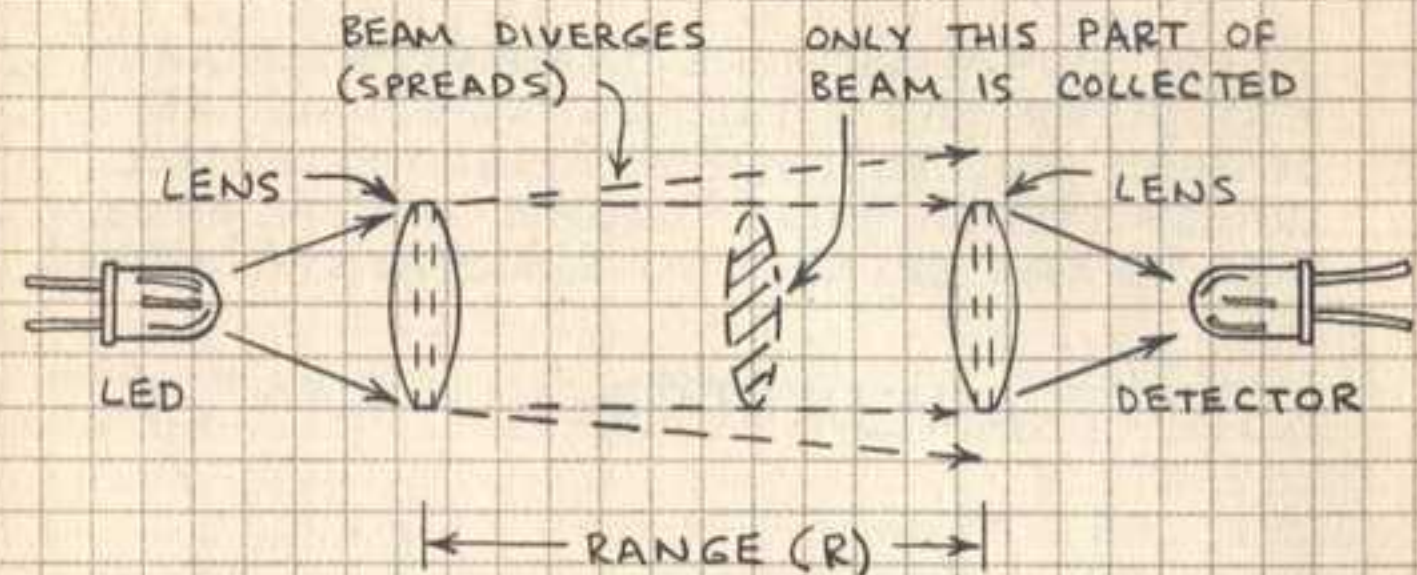 BEAM DIVERGES
(SPREADS)
ONLY THIS PART OF
BEAM IS COLLECTED
LENS
LENS
LED
DETECTOR
RANGE (R)